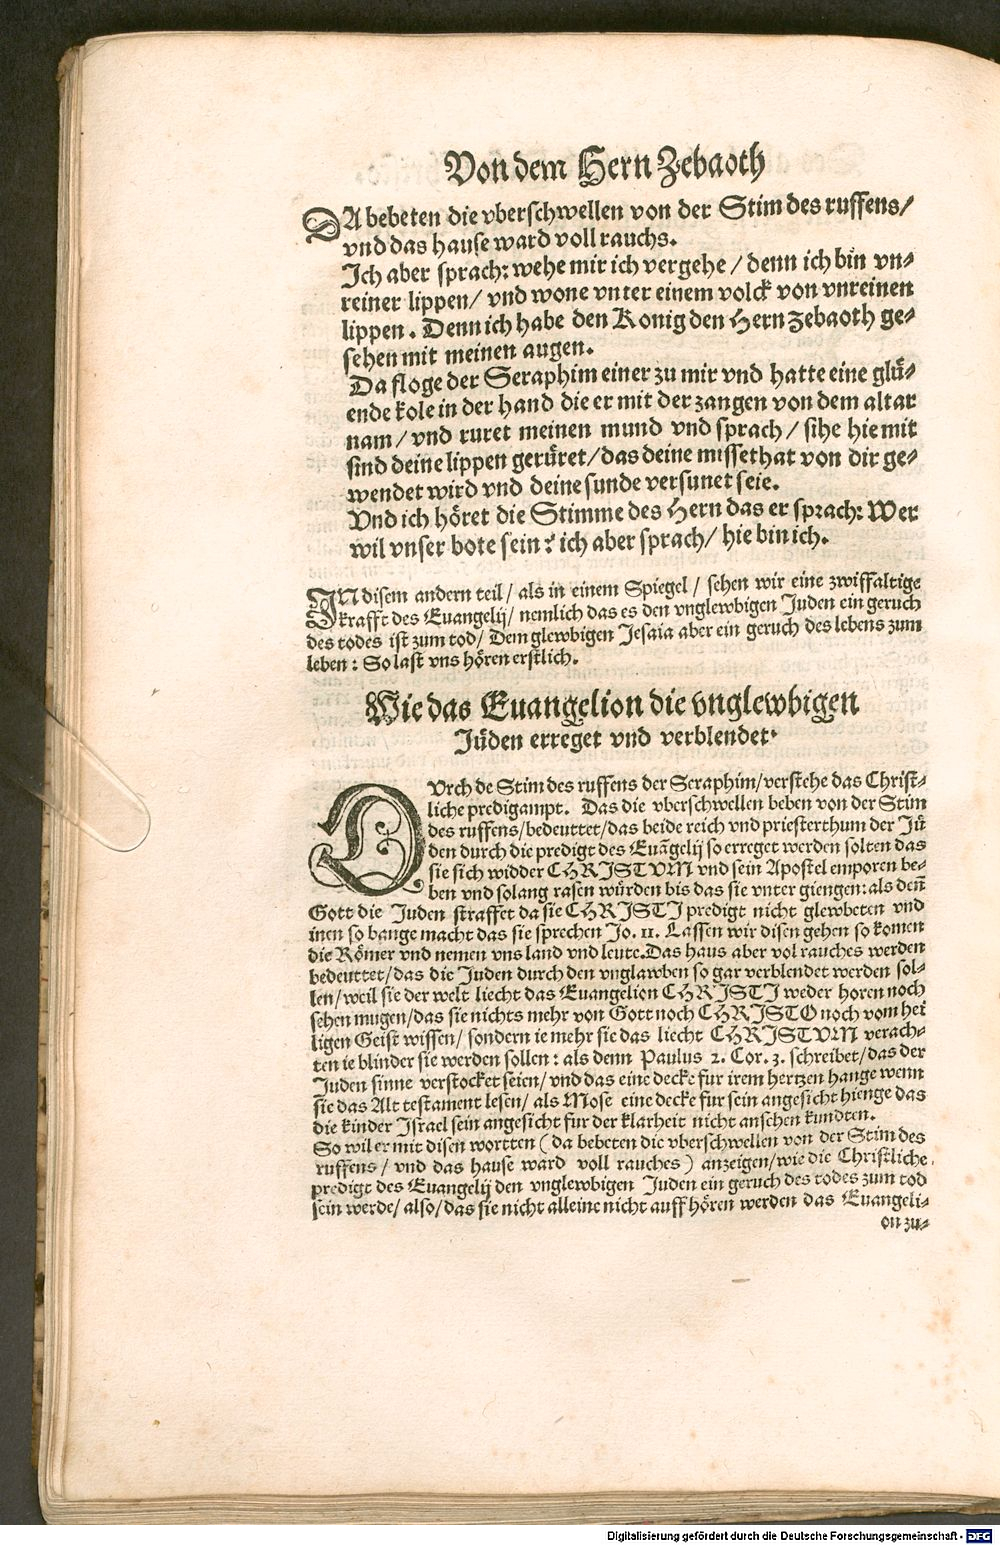 Von dem Hern Zebaoth
DA bebeten die vberschwellen von der Stim des ruffens/
vnd das hause ward voll rauchs.
Ich aber sprach: wehe mir ich vergehe / denn ich bin vn⸗
reiner lippen/ vnd wone vnter einem volck von vnreinen
lippen. Denn ich habe den Konig den Hern zebaoth ge⸗
sehen mit meinen augen.
Da floge der Seraphim einer zu mir vnd hatte eine glü⸗
ende kole in der hand die er mit der zangen von dem altar
nam / vnd ruret meinen mund vnd sprach / sihe hie mit
sind deine lippen gerüret/das deine missethat von dir ge⸗
wendet wird vnd deine sunde versunet seie.
Vnd ich höret die Stimme des Hern das er sprach: Wer
wil vnser bote sein? ich aber sprach/ hie bin ich.
IN disem andern teil / als in einem Spiegel / sehen wir eine zwiffaltige
krafft des Euangelij/ nemlich das es den vnglewbigen Juden ein geruch
des todes ist zum tod/ Dem glewbigen Jesaia aber ein geruch des lebens zum
leben: So last vns hören erstlich.
Wie das Euangelion die vnglewbigen
Jüden erreget vnd verblendet.
DVrch de Stim des ruffens der Seraphim/verstehe das Christ⸗
liche predigampt. Das die vberschwellen beben von der Stim
des ruffens/bedeuttet/das beide reich vnd priesterthum der Jü
den durch die predigt des Euāgelij so erreget werden solten das
sie sich widder CHRISTVM vnd sein Apostel emporen be⸗
ben vnd solang rasen würden bis das sie vnter giengen: als deñ
Gott die Juden straffet da sie CHRISTI predigt nicht glewbeten vnd
inen so bange macht das sie sprechen Jo. 11. Lassen wir disen gehen so komen
die Römer vnd nemen vns land vnd leute. Das haus aber vol rauches werden
bedeuttet/das die Juden durch den vnglawben so gar verblendet werden sol⸗
len/weil sie der welt liecht das Euangelion CHRISTI weder horen noch
sehen mugen/das sie nichts mehr von Gott noch CHRISTO noch vom hei
ligen Geist wissen/ sondern ie mehr sie das liecht CHRISTVM verach⸗
ten ie blinder sie werden sollen: als denn Paulus 2. Cor. 3. schreibet/das der
Juden sinne verstocket seien/ vnd das eine decke fur irem hertzen hange wenn
sie das Alt testament lesen/ als Mose eine decke fur sein angesicht hienge das
die kinder Israel sein angesicht fur der klarheit nicht ansehen kundten.
So wil er mit disen wortten ( da bebeten die vberschwellen von der Stim des
ruffens / vnd das hause ward voll rauches ) anzeigen/wie die Christliche
predigt des Euangelij den vnglewbigen Juden ein geruch des todes zum tod
sein werde/ also/das sie nicht alleine nicht auff hören werden das Euangeli⸗
on zu⸗
Digitalisierung gefördert durch die Deutsche Forschungsgemeinschaft - DFG